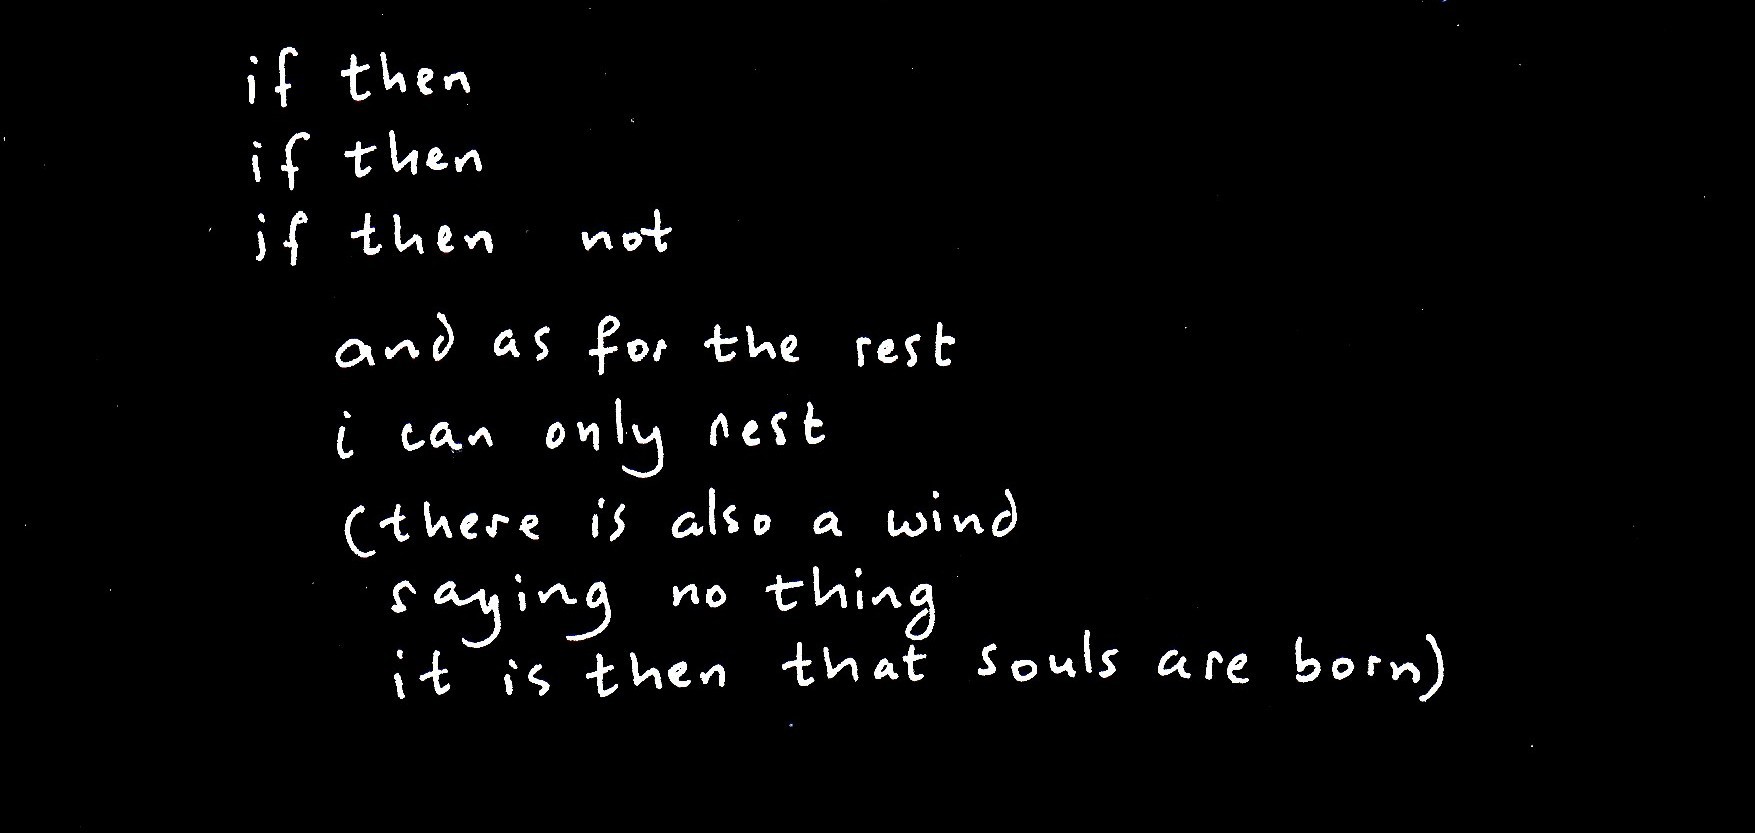 if then
if then
if then not
and as for the rest
i can only rest
(there is also a wind
saying no thing
it is then that souls are born)